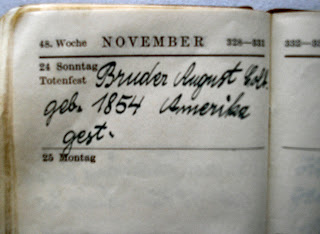 48. Woche NOVEMBER 328—331
24 Sonntag Bruder August
Totenfest
geb. 1854 Amerika
gest.
25 Montag
332—